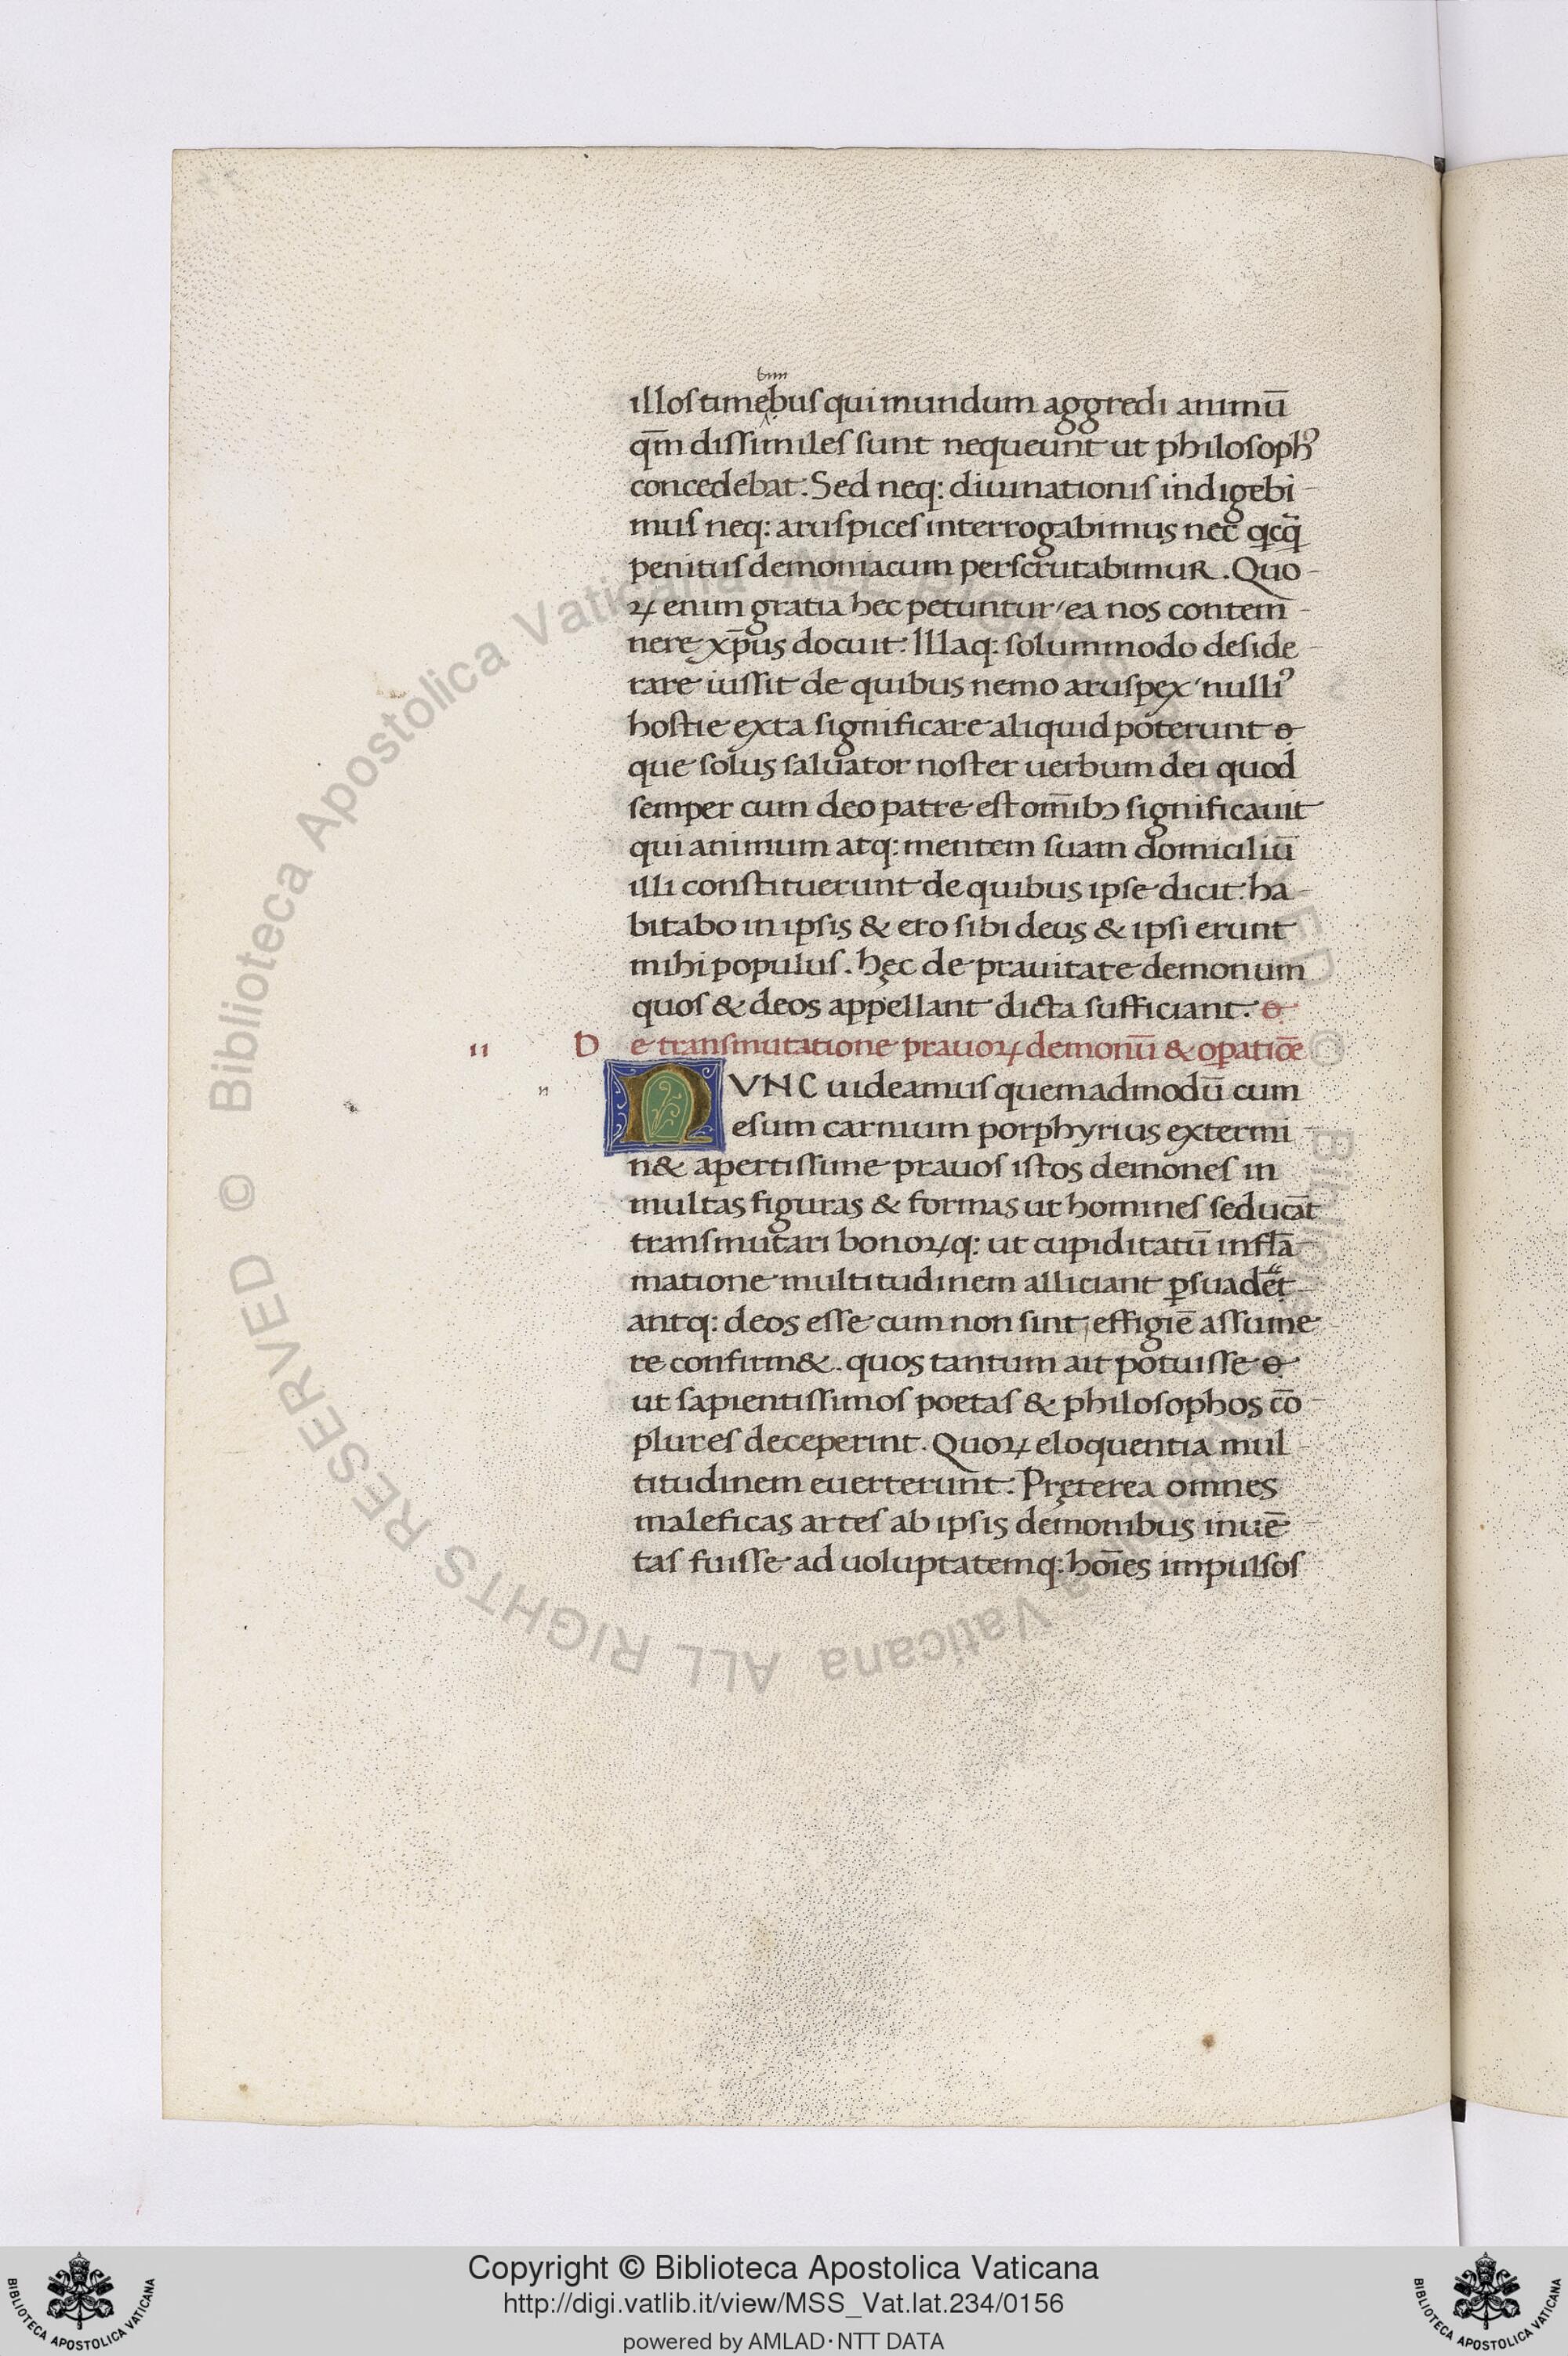 bim
illos timebus qui mundum aggredi animū
qm̄ dissimiles sunt nequeunt ut philosophꝰ
concedebat. Sed neq: diuinationis indigebi-
mus neq: aruspices interrogabimus nec qͥcq̃
penitus demoniacum perscrutabimuR. Quo-
ꝝ enim gratia hec petuntur ea nos contem-
nere xp̄us docuit. Illaq: solummodo deside-
rare iussit de quibus nemo aruspex nulliꝰ
hostie exta significare aliquid poterunt
que solus saluator noster uerbum dei quod
semper cum deo patre est om̄ibꝫ significauit
qui animum atq: mentem suam domiciliū
illi constituerunt de quibus ipse dicit. ha-
bitabo in ipsis & ero sibi deus & ipsi erunt
mihi populus. hęc de prauitate demonum
quos & deos appellant dicta sufficiant.
11 De transmutatione prauoꝝ demonū & oꝑatiōe
n NVNC uideamus quemadmodū cum
esum carnium porphyrius extermi-
n& apertissime prauos istos demones in
multas figuras & formas ut homines seducāt
transmutari bonoꝝq: ut cupiditatū inflā-
matione multitudinem alliciant ꝑsuadēt
antq: deos esse cum non sint effigiē assume-
re confirm&. quos tantum ait potuisse
ut sapientissimos poetas & philosophos cō-
plures deceperint. Quoꝝ eloquentia mul-
titudinem euerterunt. Pręterea omnes
maleficas artes ab ipsis demonibus inuē-
tas fuisse ad uoluptatemq: hoīes impulsos
Biblioteca Apostolica Vaticana ALL RIGHTS RESERVED ©
Copyright © Biblioteca Apostolica Vaticana
http://digi.vatlib.it/view/MSS_Vat.lat.234/0156
powered by AMLAD·NTT DATA
BIBLIOTECA APOSTOLICA VATICANA
BIBLIOTECA APOSTOLICA VATICANA